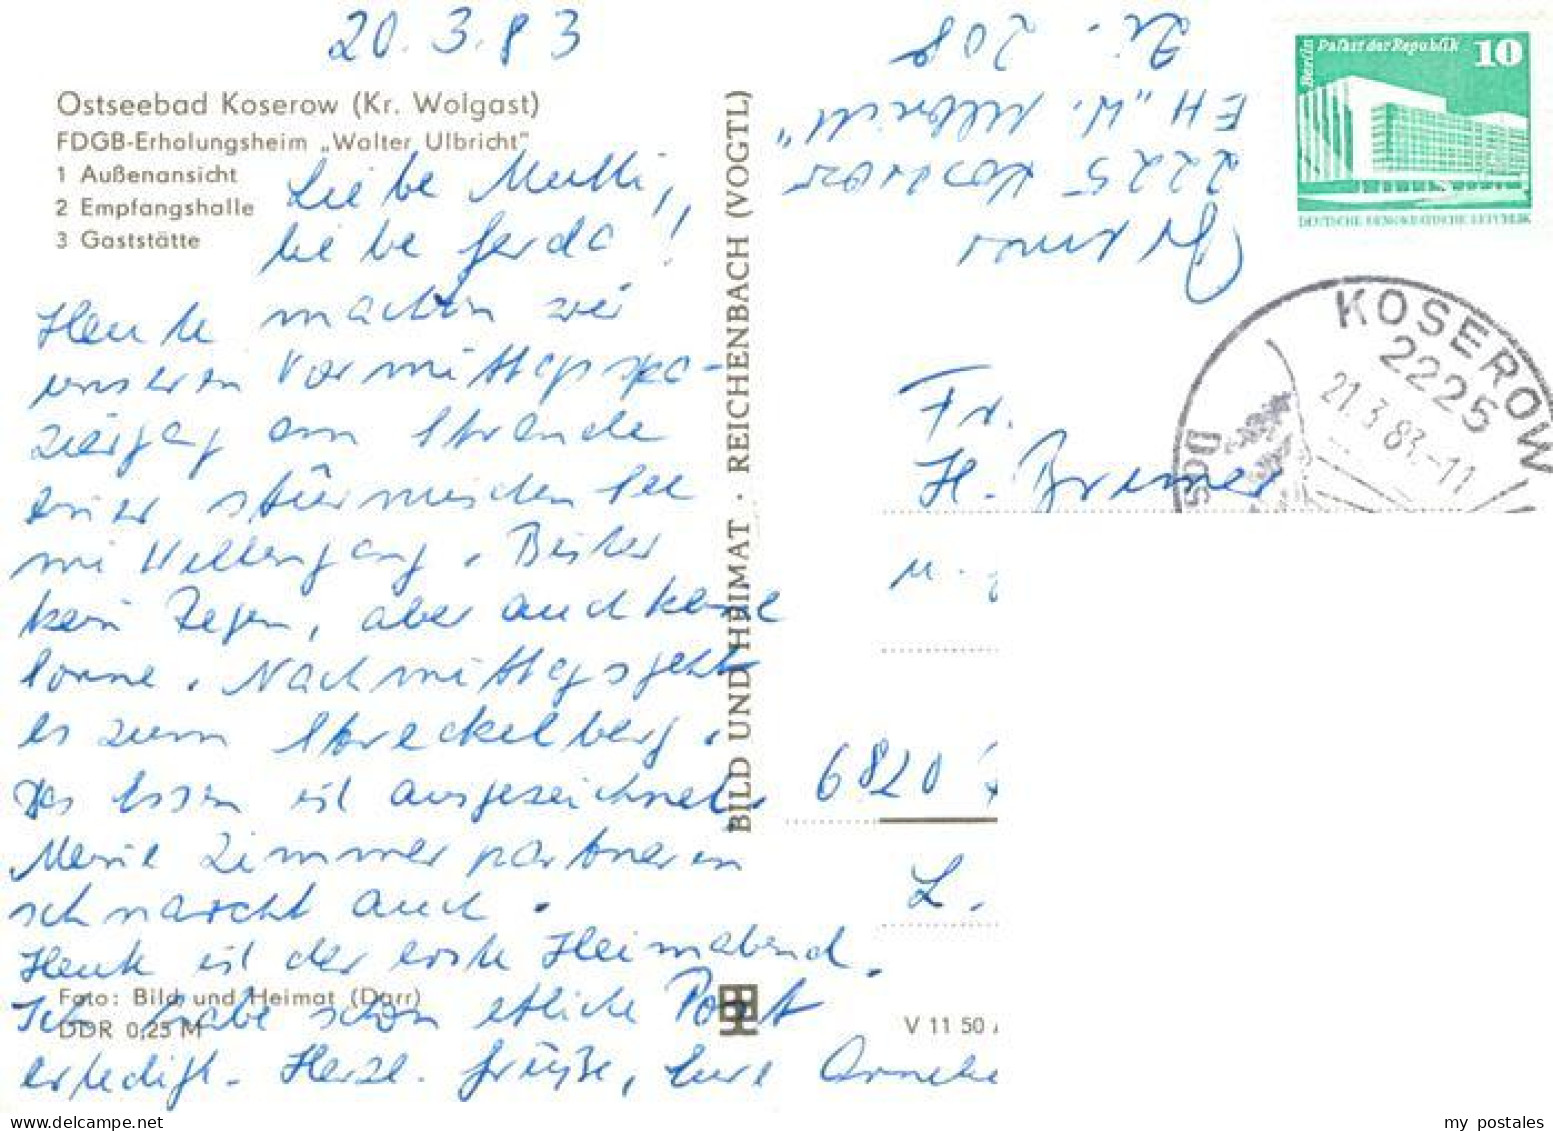 20.3.83
Ostseebad Koserow (Kr. Wolgast)
FDGB-Erholungsheim „Walter Ulbricht"
1 Außenansicht
2 Empfangshalle
3 Gaststätte
Liebe Mutti,
liebe Gerda!
Heute machten wir
unseren Vormittagsspa-
ziergang am Strande
einer stürmischen See
mi Wellengang. Bisher
kein Regen, aber auch keine
Sonne. Nachmittags geht
es zum Streckelberg.
Das Essen ist ausgezeichnet.
Meine Zimmerpartnerin
schnarcht auch.
Heute ist der erste Heimabend.
Ich habe schon etliche Post
erledigt. Herzl. Grüße, Eure
Foto: Bild und Heimat (Darr)
DDR 0,25 M
BILD UND HEIMAT · REICHENBACH (VOGTL)
2225 Koserow
EH „W. Ulbricht"
Zi. 208
Berlin Palast der Republik 10
DEUTSCHE DEMOKRATISCHE REPUBLIK
KOSEROW
2225
21.3.83.-11
Das
Fr.
H. Bremer
u.
6820
L.
V 11 50
my postales